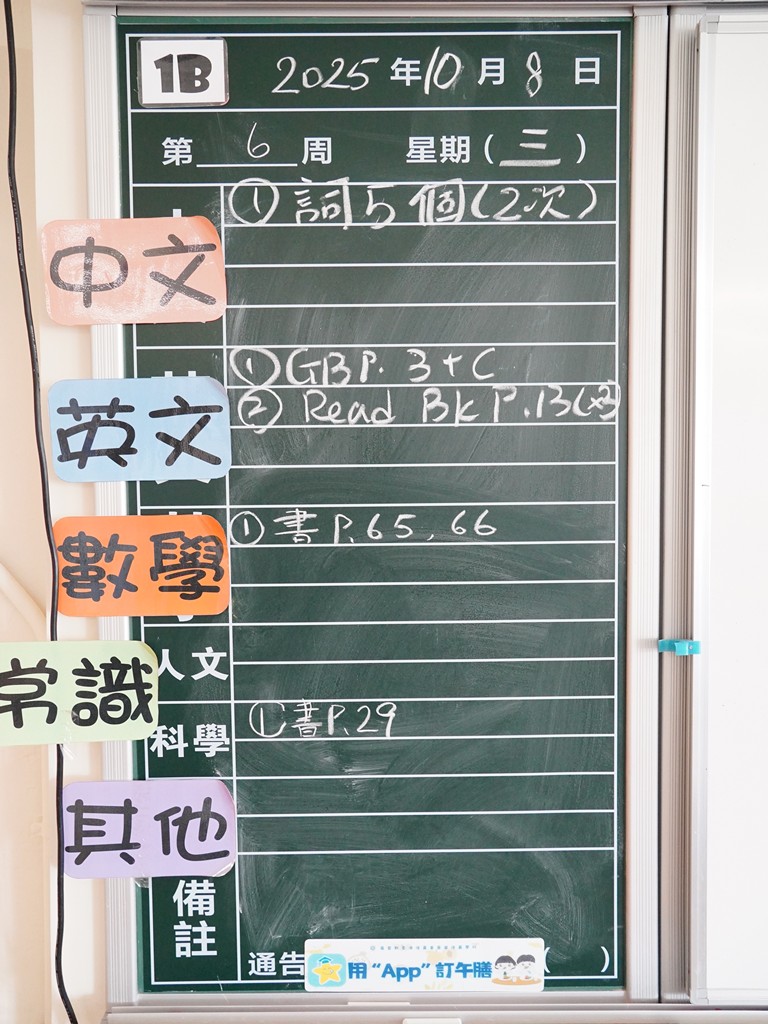 1B 2025年10月8日
第 6 周 星期(三)
中文
① 詞5個(2次)
英文
① GB P. 3 + C
② Read BK P.13(x3)
數學
① 書 P.65, 66
人文
常識
科學
① 書 P.29
其他
備註
通告
用“App”訂午膳
( )